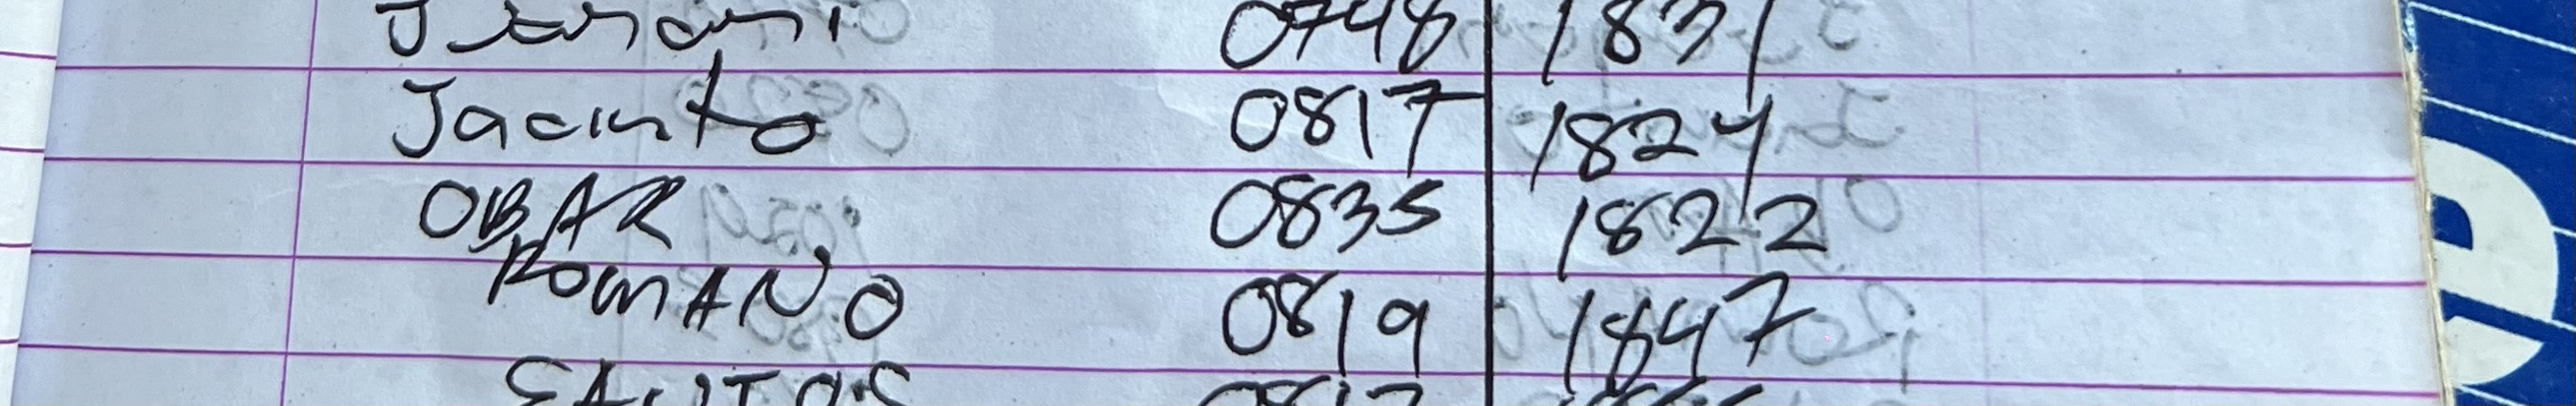 0748 1831
Jacinto 0817 1824
OBAR 0835 1822
ROMANO 0819 1847
SANTOS